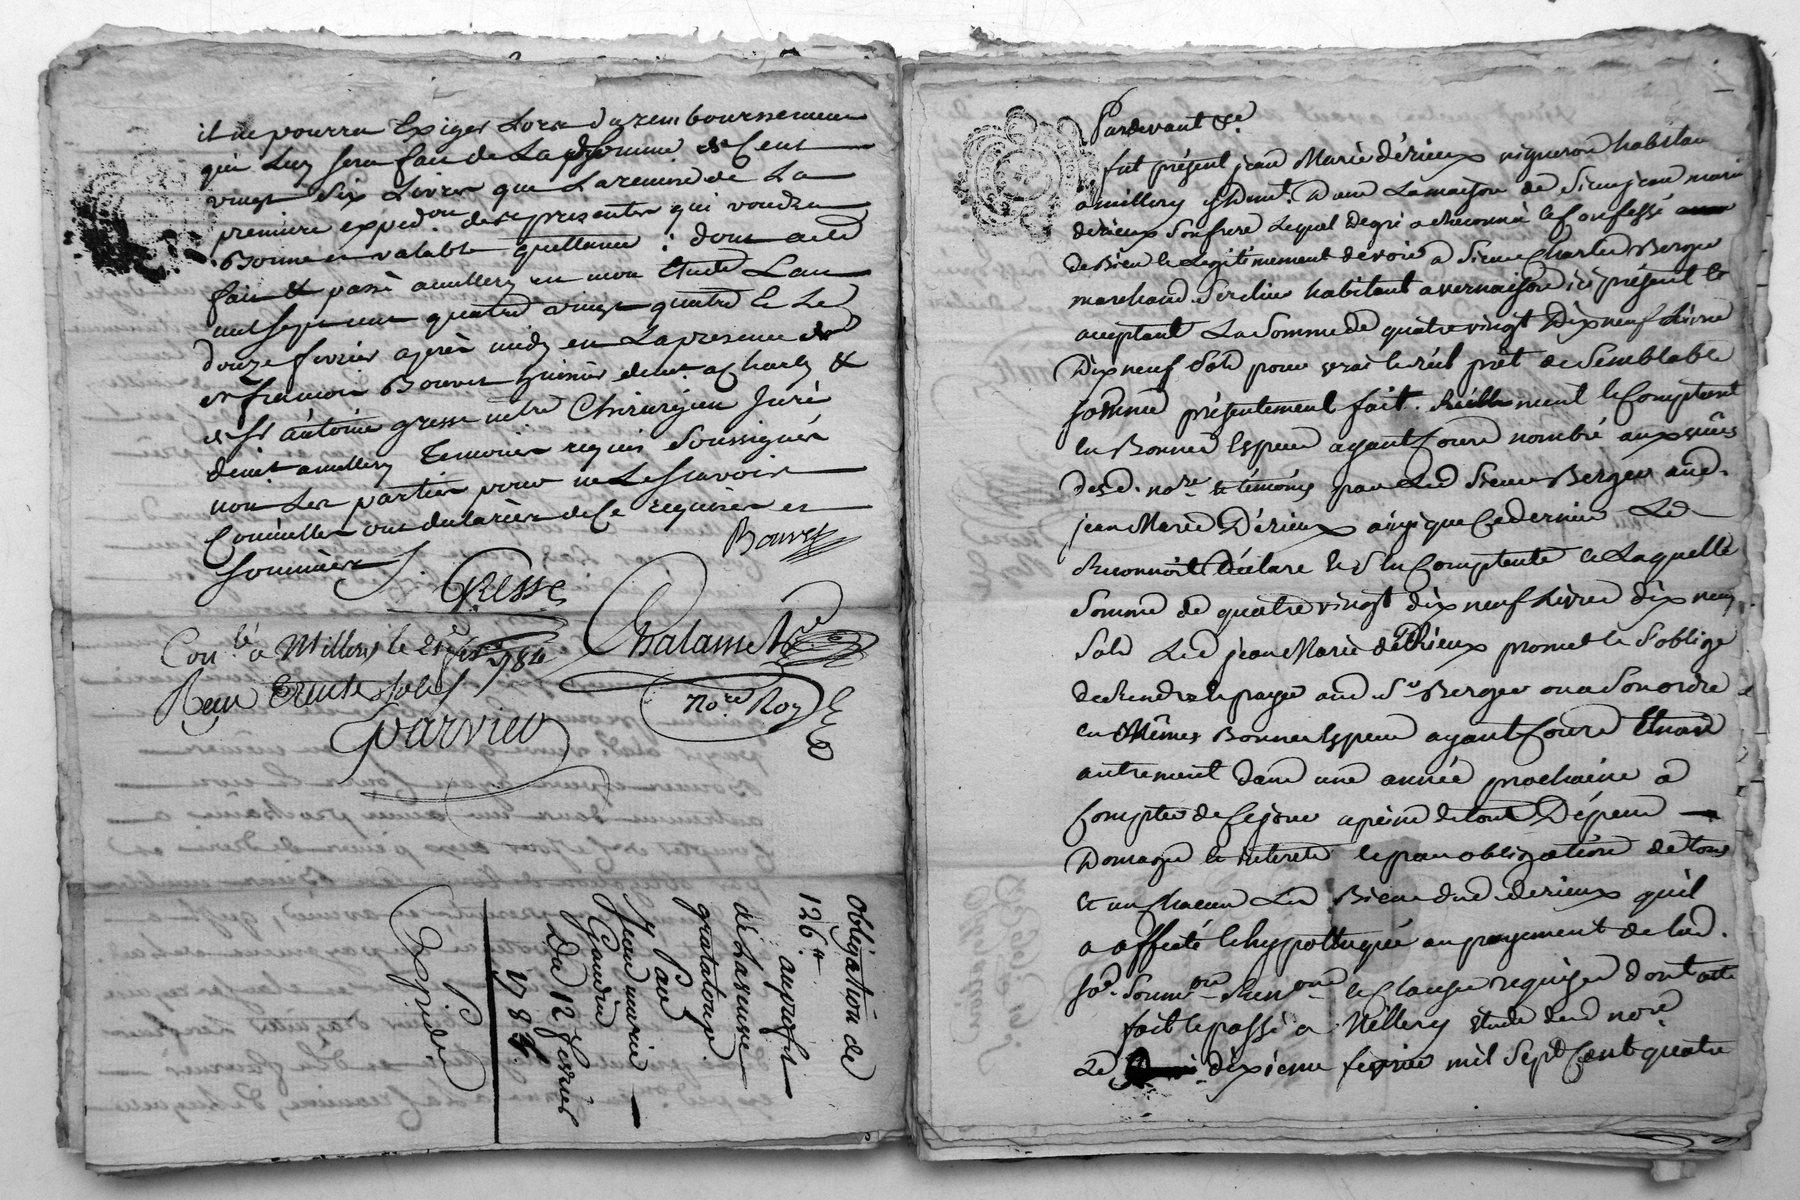 il ne pourra Exiger Lors du remboursement
qui Luy sera fait de La de somme de Cent
vingt six Livres que La remise de La
premiere exped.on des presentes qui vaudra
Bonne et valable quittance : dont acte
fait & passé a millery en mon Etude L'an
mil sept cent quatre vingt quatre & Le
douze fevrier après midy en La presence de
sr françois Bouvet dem.t a Charly &
de sr antoine gresse maitre Chirurgien juré
dem.t a millery Temoins requis Soussignés
non Les parties pour ne Le sçavoir
Comme elles ont declarées de Ce requises et
sommées
Bouvet
Gresse
Chalamet
No.re Roy
Con.lé a Millery le 1784
Reçu trente sols
Parvieu
Obligation de
126 #
au profit
de La veuve
gratatoupe
Par
Jean marie
Gaudin
Du 12 fevrier
1784
Expédié
Pardevant &c
fut présent jean Marie dérieux vigneron habitan
a millery y dem.t Dans La maison de Sieur jean marie
dérieux Son frere Lequel De gré a Reconnu & Confessé
de Bien & Legitimement devoir a Sieur Charles Berger
marchand habitant a vernaison ici présent &
acceptant La Somme de quatre vingt Dix neuf Livres
Dix neuf Sols pour vrai & réel prêt de Semblable
somme présentement fait. Réellement & Comptant
En Bonnes Espèces ayant Cours nombré aux vües
desd. no.re & témoins par Led Sieur Berger aud.
jean Marie Dérieux ainsi que Ce dernier Le
Reconnoit Déclare & S'en Contente & Laquelle
Somme de quatre vingt dix neuf Livres dix neuf
Sols Led jean Marie dérieux promet & S'oblige
de Rendre & payer aud S.r Berger ou a Son ordre
en Mêmes Bonnes Especes ayant Cours & non
autrement dans une année prochaine a
Compter de Ce jour a peine de tous Dépens
Domages & interets & par obligation de tous
& un chacun Les Biens dud derieux qu'il
a affecté & hypottequé au payement de lad.
so.e Soum.on Ren.on & Clauses requises dont acte
fait & passé a Millery étude dud no.re
Le dixieme fevrier mil Sept Cent quatre